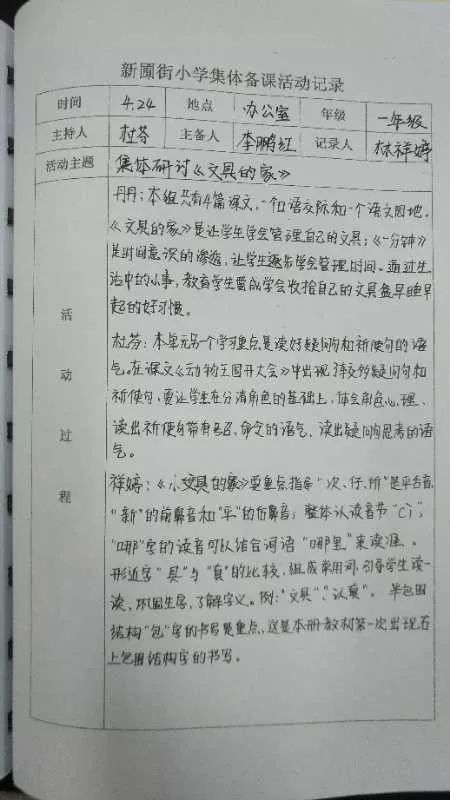 新圃街小学集体备课活动记录
时间 4.24 地点 办公室 年级 一年级
主持人 杜芬 主备人 李鹏红 记录人 林祥婷
活动主题 集体研讨《文具的家》
活动过程
丹丹：本组共有4篇课文，一个口语交际和一个语文园地。
《文具的家》是让学生学会管理自己的文具；《一分钟》
是时间意识的渗透，让学生逐步学会管理时间。通过生
活中的小事，教育学生要成学会收拾自己的文具盒早睡早
起的好习惯。
杜芬：本单元另一个学习重点是读好疑问句和祈使句的语
气。在课文《动物王国开大会》中出现了较多疑问句和
祈使句，要让学生在分清角色的基础上，体会角色心理、
读出祈使句带有的、命令的语气、读出疑问句思考的语
气。
祥婷：《文具的家》要重点指导"次、行、所"是平舌音，
"新"的前鼻音和"平"的后鼻音；整体认读音节"cì"；
"哪"字的读音可以结合词语"哪里"来读准。
形近字"具"与"真"的比较，组成常用词，引导学生读一
读、巩固生字，了解字义。例："文具"、"认真"。半包围
结构"包"字的书写是重点，这是本册教材第一次出现右
上包围结构字的书写。